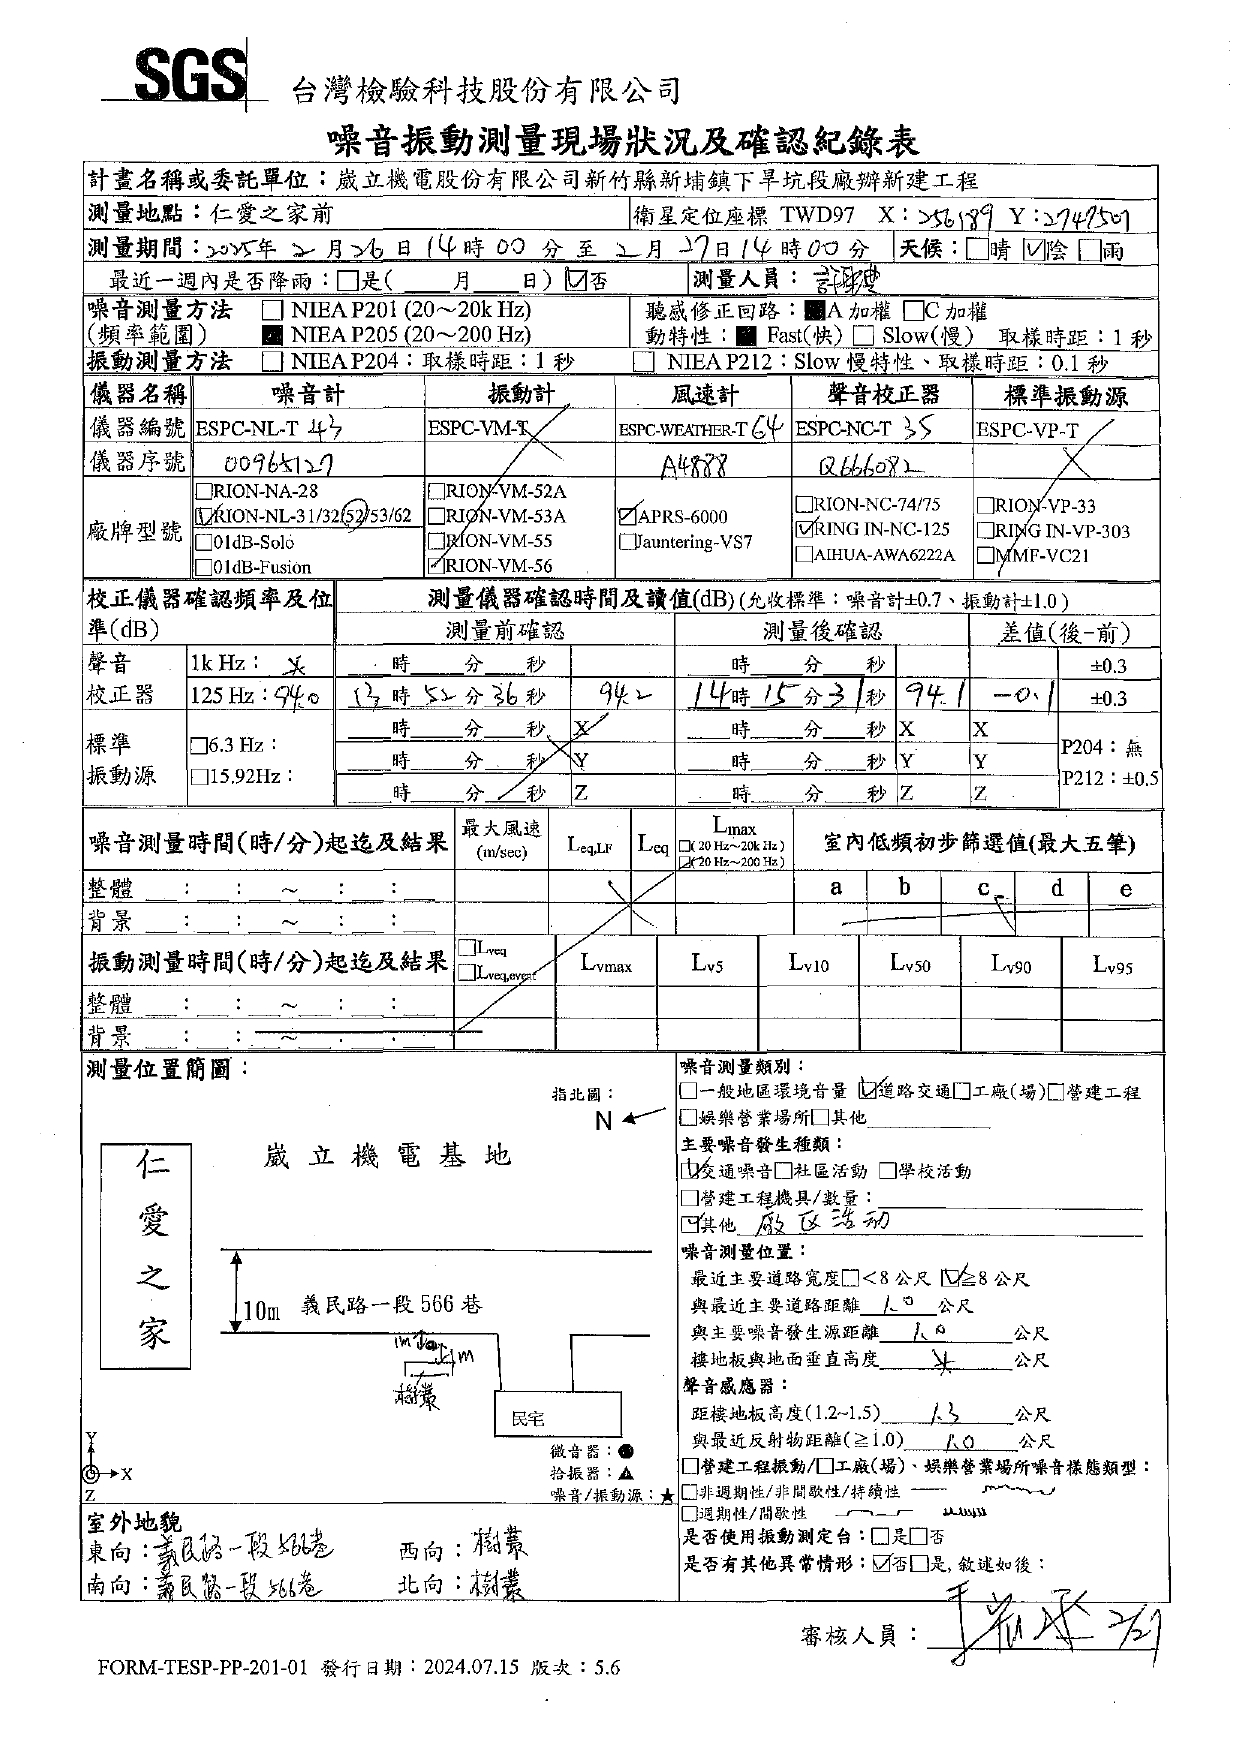 SGS 台灣檢驗科技股份有限公司
噪音振動測量現場狀況及確認紀錄表
計畫名稱或委託單位：崴立機電股份有限公司新竹縣新埔鎮下旱坑段廠辦新建工程
測量地點：仁愛之家前 衛星定位座標 TWD97 X：256189 Y：2747507
測量期間：2025年 2 月 26 日 14 時 00 分 至 2 月 27 日 14 時 00 分 天候：□晴 ☑陰 □雨
最近一週內是否降雨：□是( 月 日) ☑否 測量人員：
噪音測量方法 □ NIEA P201 (20～20k Hz) 聽感修正回路：■A 加權 □C 加權
(頻率範圍) ■ NIEA P205 (20～200 Hz) 動特性：■ Fast(快) □ Slow(慢) 取樣時距：1 秒
振動測量方法 □ NIEA P204：取樣時距：1 秒 □ NIEA P212：Slow 慢特性、取樣時距：0.1 秒
儀器名稱 噪音計 振動計 風速計 聲音校正器 標準振動源
儀器編號 ESPC-NL-T 43 ESPC-VM-T ESPC-WEATHER-T 64 ESPC-NC-T 35 ESPC-VP-T
儀器序號 00965127 A4888 Q666082
廠牌型號
□RION-NA-28
☑RION-NL-31/32/52/53/62
□01dB-Solo
□01dB-Fusion
□RION-VM-52A
□RION-VM-53A
□RION-VM-55
☑RION-VM-56
☑APRS-6000
□Jauntering-VS7
□RION-NC-74/75
☑RING IN-NC-125
□AIHUA-AWA6222A
□RION-VP-33
□RING IN-VP-303
□MMF-VC21
校正儀器確認頻率及位準(dB) 測量儀器確認時間及讀值(dB) (允收標準：噪音計±0.7、振動計±1.0)
測量前確認 測量後確認 差值(後-前)
聲音 1k Hz： 時 分 秒 時 分 秒 ±0.3
校正器 125 Hz：94.0 13 時 52 分 36 秒 94.2 14 時 15 分 31 秒 94.1 -0.1 ±0.3
標準 □6.3 Hz： 時 分 秒 X 時 分 秒 X X P204：無
振動源 □15.92Hz： 時 分 秒 Y 時 分 秒 Y Y P212：±0.5
時 分 秒 Z 時 分 秒 Z Z
噪音測量時間(時/分)起迄及結果 最大風速 (m/sec) Leq,LF Leq Lmax 室內低頻初步篩選值(最大五筆)
□( 20 Hz～20k Hz )
☑( 20 Hz～200 Hz )
整體 : : ～ : : a b c d e
背景 : : ～ : :
振動測量時間(時/分)起迄及結果 □Lveq □Lveq,event Lvmax Lv5 Lv10 Lv50 Lv90 Lv95
整體 : : ～ : :
背景 : : ～ : :
測量位置簡圖：
指北圖：
N
仁愛之家
崴立機電基地
10m 義民路一段 566 巷
1m
1m
樹叢
民宅
Y
X
Z
微音器：●
拾振器：▲
噪音/振動源：★
室外地貌
東向：義民路一段566巷 西向：樹叢
南向：義民路一段566巷 北向：樹叢
噪音測量類別：
□一般地區環境音量 ☑道路交通□工廠(場)□營建工程
□娛樂營業場所□其他
主要噪音發生種類：
☑交通噪音□社區活動 □學校活動
□營建工程機具/數量：
☑其他 廠區活動
噪音測量位置：
最近主要道路寬度□<8 公尺 ☑≧8 公尺
與最近主要道路距離 1.0 公尺
與主要噪音發生源距離 1.0 公尺
樓地板與地面垂直高度 公尺
聲音感應器：
距樓地板高度(1.2~1.5) 1.3 公尺
與最近反射物距離(≧1.0) 1.0 公尺
□營建工程振動/□工廠(場)、娛樂營業場所噪音樣態類型：
□非週期性/非間歇性/持續性
□週期性/間歇性
是否使用振動測定台：□是□否
是否有其他異常情形：☑否□是, 敘述如後：
審核人員： 2/27
FORM-TESP-PP-201-01 發行日期：2024.07.15 版次：5.6